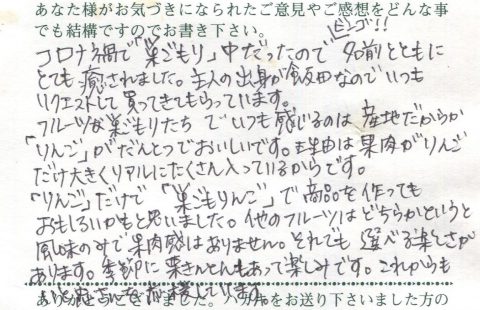 あなた様がお気づきになられたご意見やご感想をどんな事
でも結構ですのでお書き下さい。
ビンゴ!!
コロナ禍で「巣ごもり」中だったので 名前とともに
とても癒されました。主人の出身が飯田なのでいつも
リクエストして買ってきてもらっています。
フルーツな巣ごもりたち でいつも感じるのは産地だからか
「りんご」がだんとつでおいしいです。理由は果肉がりんご
だけ大きくリアルにたくさん入っているからです。
「りんご」だけで 「巣ごもりりんご」で商品を作っても
おもしろいかもと思いました。他のフルーツはどちらかというと
風味のみで果肉感はありません。それでも 選べる楽しさが
あります。季節に栗きんとんもあって楽しみです。これからも
ありがとうございました。ハガキをお送り下さいました方の